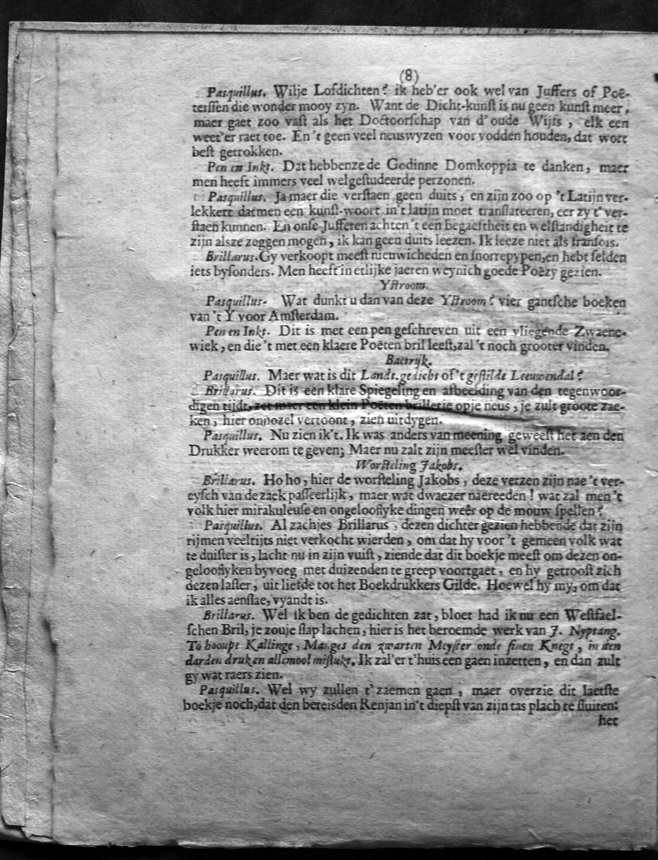 (8)
Pasquillus. Wilje Lofdichten? ik heb'er ook wel van Juffers of Poë-
terssen die wonder mooy zyn. Want de Dicht-kunst is nu geen kunst meer,
maer gaet zoo vast als het Doctoorschap van d'oude Wijfs, elk een
weet'er raet toe. En 't geen veel neuswyzen voor vodden houden, dat wort
best getrokken.
Pen en Inkt. Dat hebbenze de Godinne Domkoppia te danken, maer
men heeft immers veel welgestudeerde perzonen.
Pasquillus. Ja maer die verstaen geen duits, en zijn zoo op 't Latijn ver-
lekkert datmen een kunst-woort in 't latijn moet translateeren, eer zy t' ver-
staen kunnen. En onse Jufferen achten 't een begaeftheit en welstandigheit te
zijn alsze zeggen mogen, ik kan geen duits leezen. Ik leeze niet als fransois.
Brillarus. Gy verkoopt meest nieuwicheden en snorrepypen, en hebt selden
iets bysonders. Men heeft in etlijke jaeren weynich goede Poëzy gezien.
YStroom.
Pasquillus. Wat dunkt u dan van deze YStroom? vier gantsche boeken
van 't Y voor Amsterdam.
Pen en Inkt. Dit is met een pen geschreven uit een vliegende Zwaene-
wiek, en die 't met een klaere Poëten bril leest, zal 't noch grooter vinden.
Bacrijk.
Pasquillus. Maer wat is dit Lants gedicht of 't gestilde Leeuwendal?
Brillarus. Dit is een klare Spiegeling en afbeelding van den tegenwoor-
digen tijdt, zet maer een klein Poëten brilletie op je neus, je zult groote zae-
ken, hier onnozel vertoont, zien uitdygen.
Pasquillus. Nu zien ik't. Ik was anders van meening geweest het aen den
Drukker weerom te geven; Maer nu zalt zijn meester wel vinden.
Worsteling Jakobs.
Brillarus. Ho ho, hier de worsteling Jakobs, deze verzen zijn nae 't ver-
eysch van de zaek passeerlijk, maer wat dwaezer naereeden! wat zal men 't
volk hier mirakuleuse en ongelooflyke dingen weêr op de mouw spellen?
Pasquillus. Al zachjes Brillarus, dezen dichter gezien hebbende dat zijn
rijmen veeltijts niet verkocht wierden, om dat hy voor 't gemeen volk wat
te duister is, lacht nu in zijn vuist, ziende dat dit boekje meest om dezen on-
gelooflyken byvoeg met duizenden te greep voortgaet, en hy getroost zich
dezen laster, uit liefde tot het Boekdrukkers Gilde. Hoewel hy my, om dat
ik alles aenslae, vyandt is.
Brillarus. Wel ik ben de gedichten zat, bloet had ik nu een Westfael-
schen Bril, je zouje slap lachen, hier is het beroemde werk van J. Nyptang.
To booupt Kallinge, Masges den zwarten Meyster onde sinen Knegt, in den
darden druk en allemool mislukt. Ik zal'er t'huis een gaen inzetten, en dan zult
gy wat raers zien.
Pasquillus. Wel wy zullen t'zaemen gaen, maer overzie dit laetste
boekje noch, dat den bereisden Renjan in't diepst van zijn tas plach te sluiten:
het